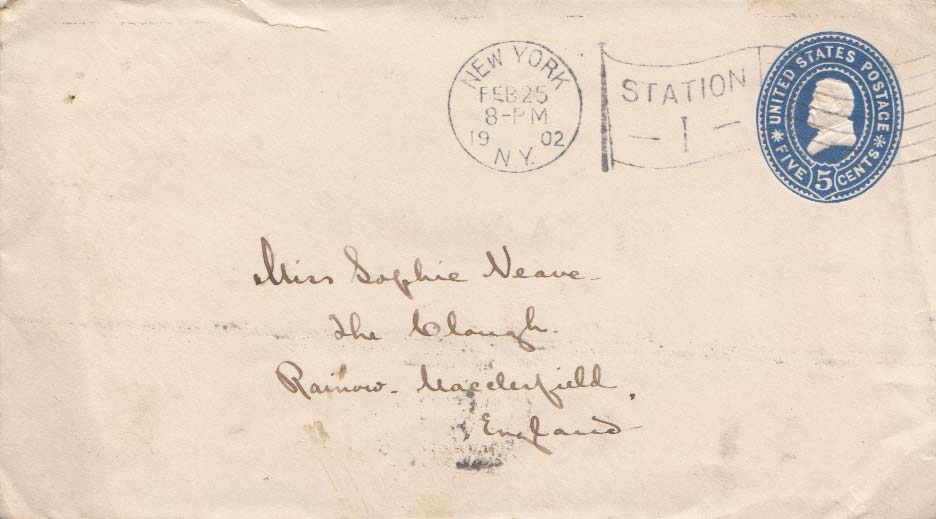 NEW YORK
FEB 25
8-PM
19 02
N.Y.
STATION
- I -
UNITED STATES POSTAGE
* FIVE 5 CENTS *
Miss Sophie Neave
The Clough.
Rainow. Macclesfield,
England